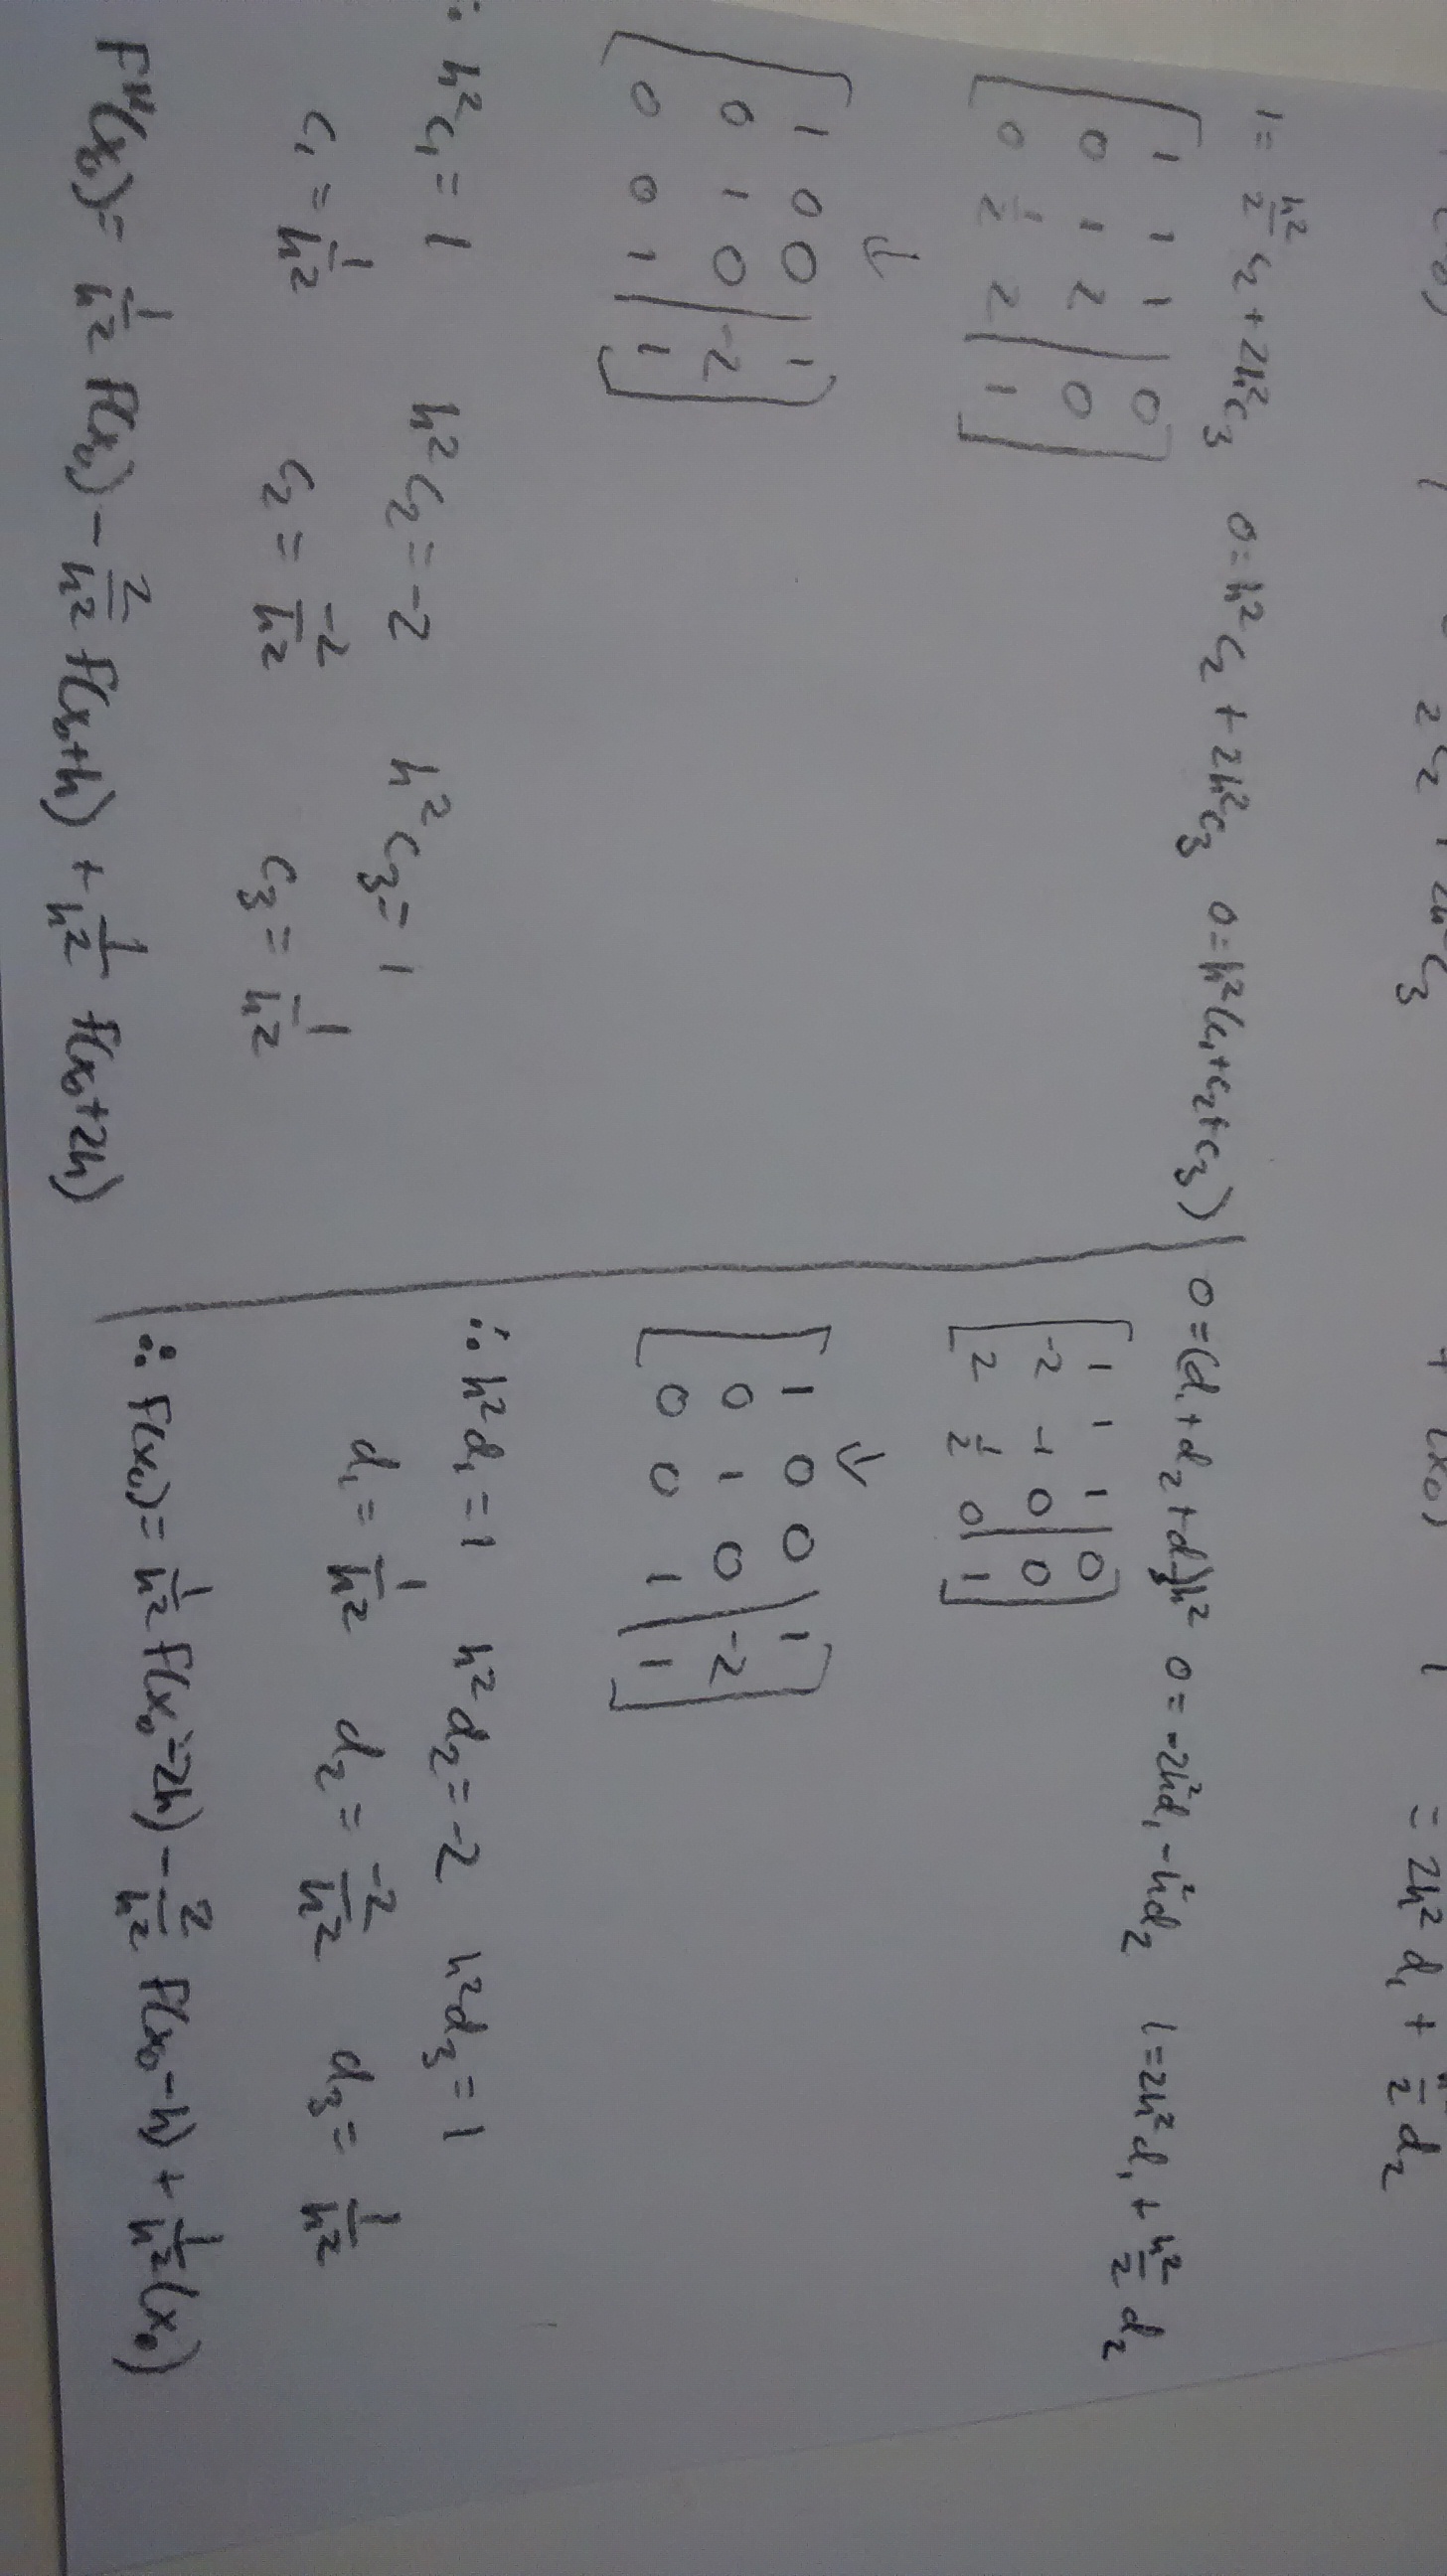 2 c₂ + 2h² c₃
= 2h² d₁ + h²/2 d₂
1 = h²/2 c₂ + 2h²c₃   0 = h²c₂ + 2h²c₃   0 = h²(c₁+c₂+c₃)
[ 1 1 1 | 0 ]
[ 0 1 2 | 0 ]
[ 0 1/2 2 | 1 ]
↓
[ 1 0 0 | 1 ]
[ 0 1 0 | -2 ]
[ 0 0 1 | 1 ]
∴ h²c₁ = 1   h²c₂ = -2   h²c₃ = 1
c₁ = 1/h²   c₂ = -2/h²   c₃ = 1/h²
F''(x₀) = 1/h² f(x₀) - 2/h² f(x₀+h) + 1/h² f(x₀+2h)
0 = (d₁ + d₂ + d₃)h²   0 = -2h²d₁ - h²d₂   1 = 2h²d₁ + h²/2 d₂
[ 1 1 1 | 0 ]
[ -2 -1 0 | 0 ]
[ 2 1/2 0 | 1 ]
↓
[ 1 0 0 | 1 ]
[ 0 1 0 | -2 ]
[ 0 0 1 | 1 ]
∴ h²d₁ = 1   h²d₂ = -2   h²d₃ = 1
d₁ = 1/h²   d₂ = -2/h²   d₃ = 1/h²
∴ F(x₀) = 1/h² F(x₀-2h) - 2/h² F(x₀-h) + 1/h² (x₀)